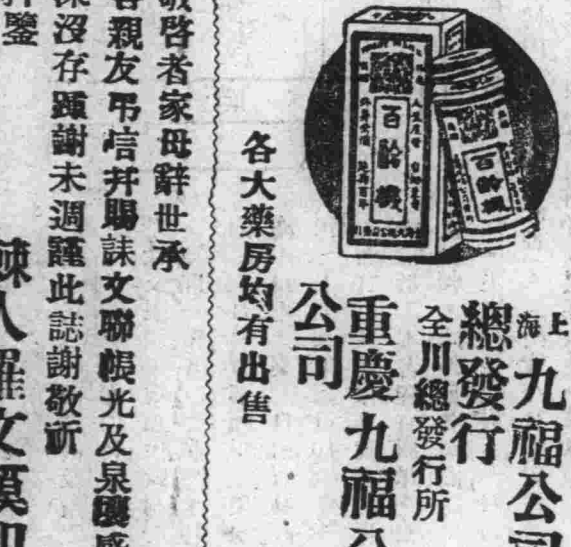 百齡機
百齡機
上海
九福公司
總發行
全川總發行所
重慶九福公
公司
各大藥房均有出售
啓者家母辭世承
親友弔信幷賜誄文聯帳光及泉
沒存踵謝未週謹此誌謝敬祈
鑒
人羅文謨